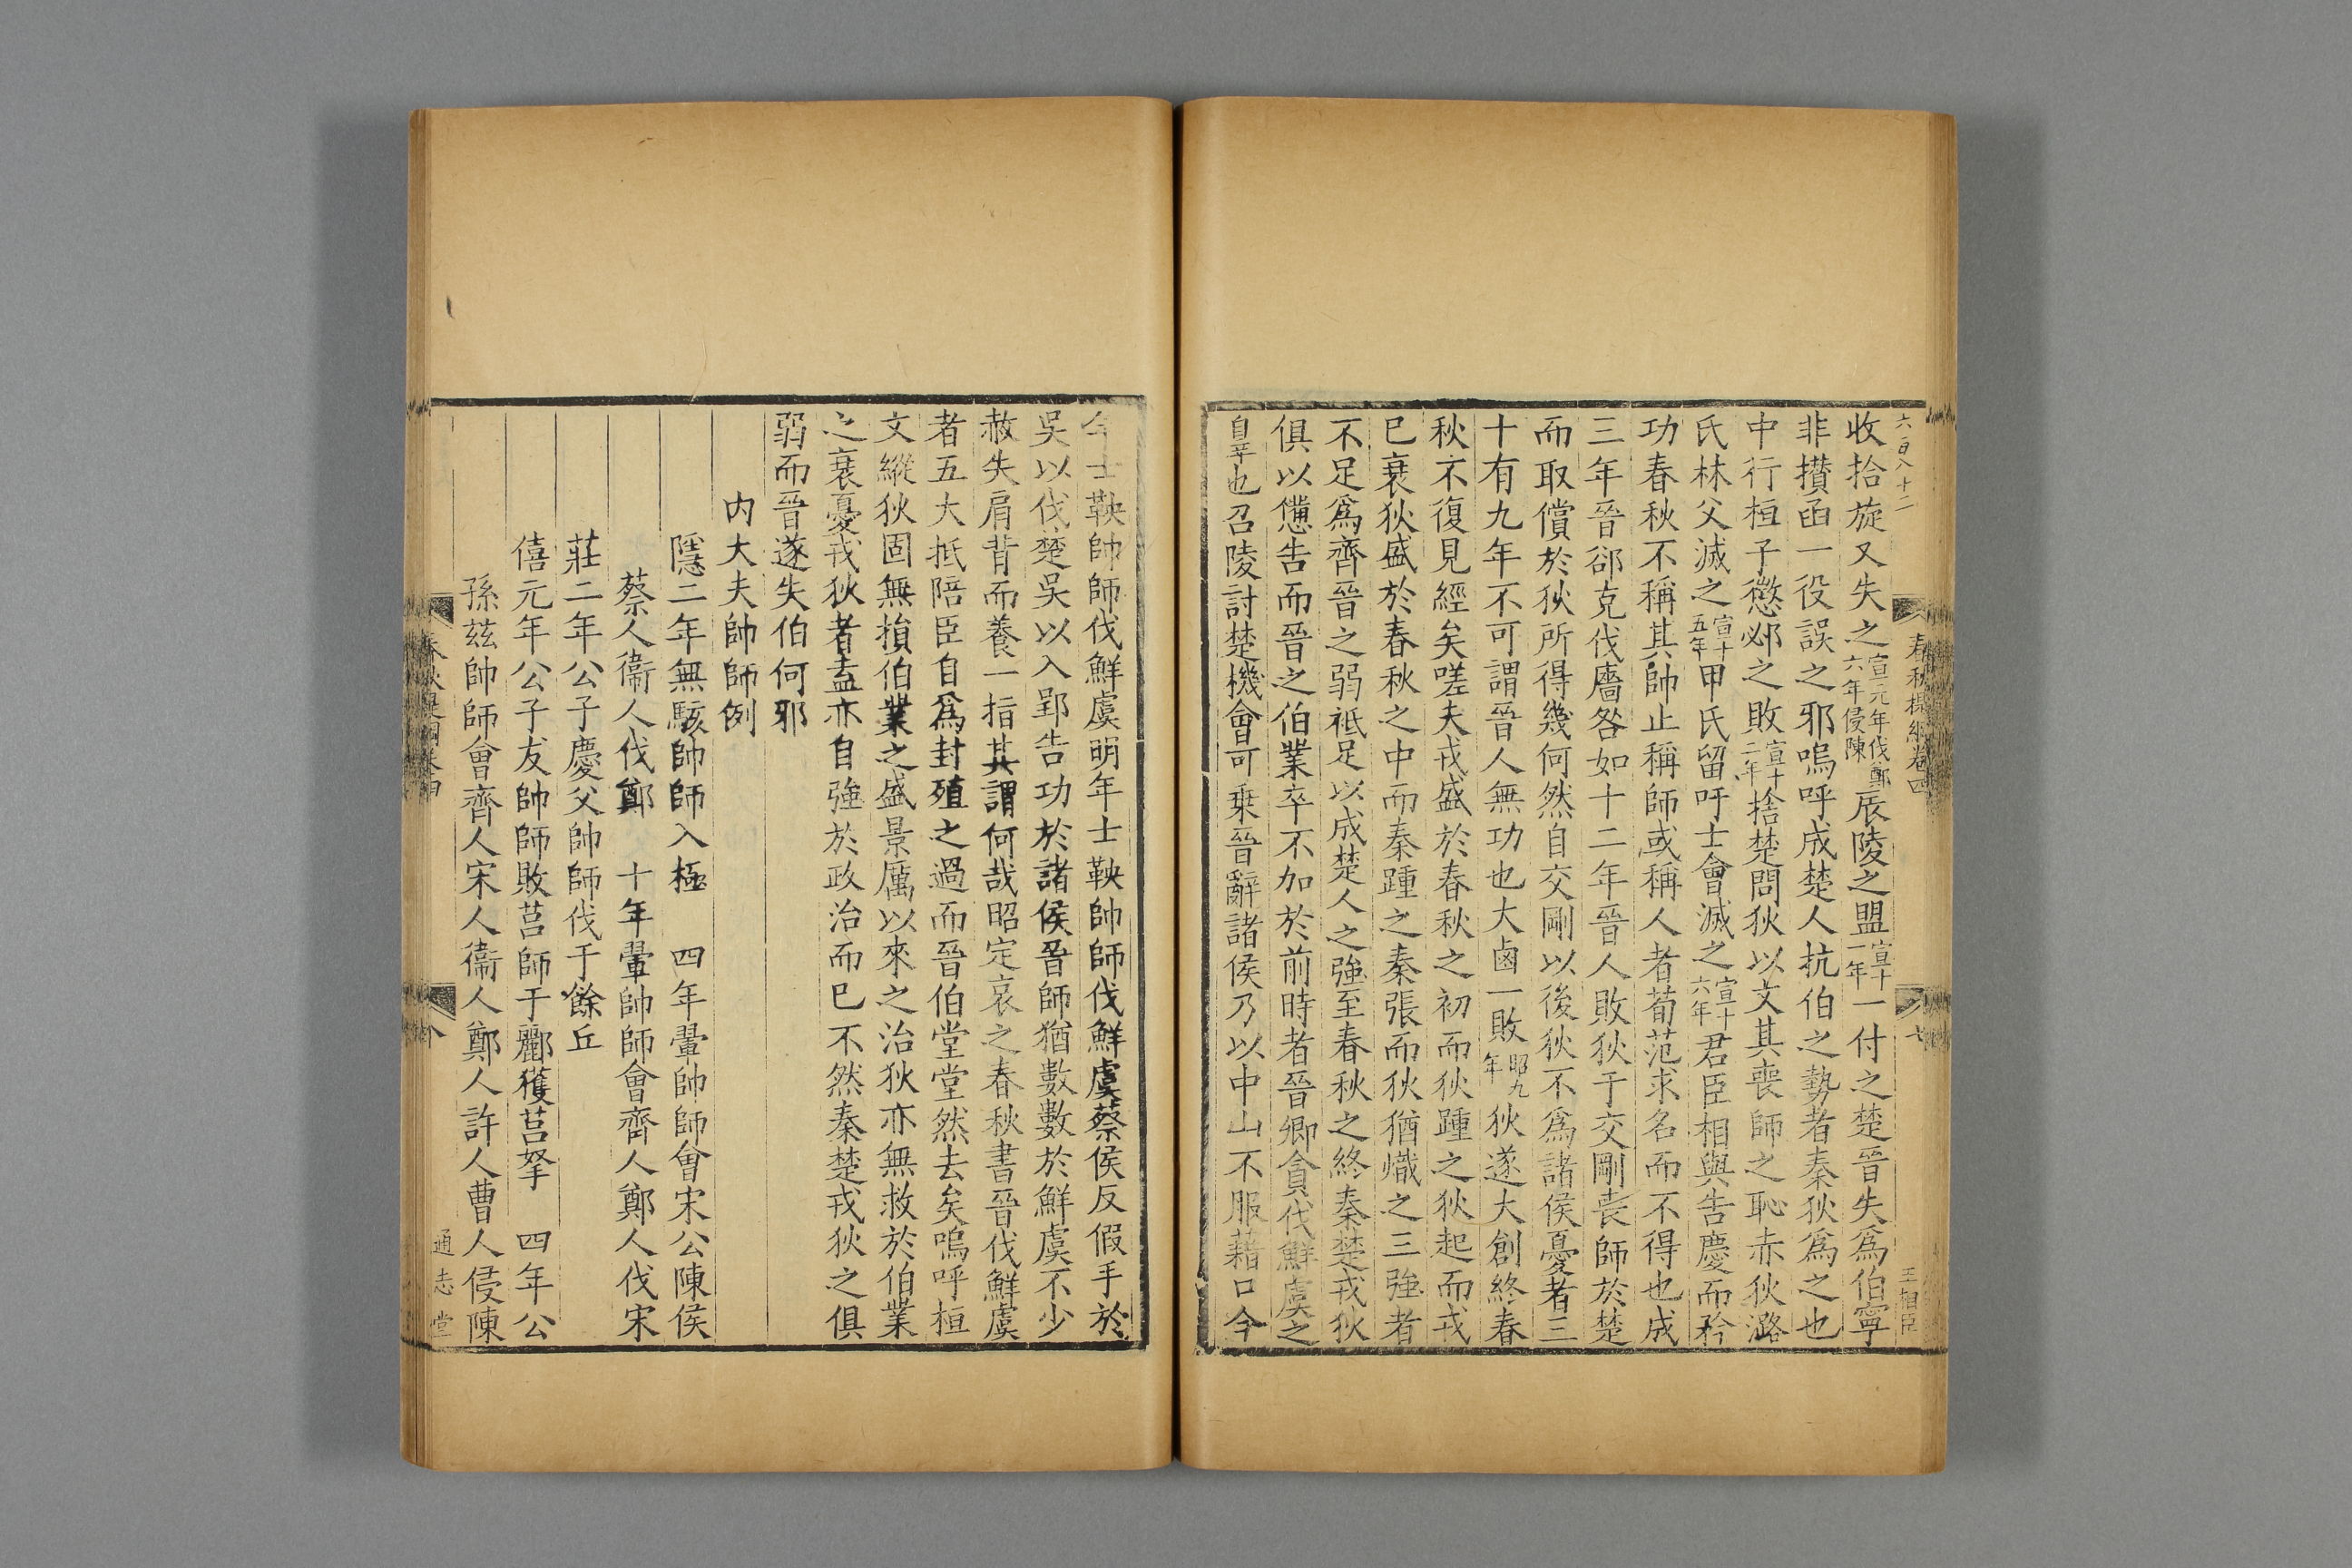 六百八十二
春秋提綱卷四
七
王相臣
收拾旋又失之宣元年伐鄭六年侵陳辰陵之盟宣十一年一付之楚晉失爲伯寧
非攅函一役誤之邪嗚呼成楚人抗伯之勢者秦狄爲之也
中行桓子懲邲之敗宣十二年捨楚問狄以文其喪師之恥赤狄潞
氏林父滅之宣十五年甲氏留吁士會滅之宣十六年君臣相與告慶而矜
功春秋不稱其帥止稱師或稱人者荀范求名而不得也成
三年晉郤克伐廧咎如十二年晉人敗狄于交剛喪師於楚
而取償於狄所得幾何然自交剛以後狄不爲諸侯憂者三
十有九年不可謂晉人無功也大鹵一敗昭九年狄遂大創終春
秋不復見經矣嗟夫戎盛於春秋之初而狄踵之狄起而戎
已衰狄盛於春秋之中而秦踵之秦張而狄猶熾之三強者
不足爲齊晉之弱祗足以成楚人之強至春秋之終秦楚戎狄
俱以憊告而晉之伯業卒不加於前時者晉卿貪伐鮮虞之
自斃也召陵討楚機會可乗晉辭諸侯乃以中山不服藉口今
士鞅帥師伐鮮虞明年士鞅帥師伐鮮虞蔡侯反假手於
吳以伐楚吳以入郢告功於諸侯晉師猶數數於鮮虞不少
赦失肩背而養一指其謂何哉昭定哀之春秋書晉伐鮮虞
者五大抵陪臣自爲封殖之過而晉伯堂堂然去矣嗚呼桓
文縱狄固無損伯業之盛景厲以來之治狄亦無救於伯業
之衰憂戎狄者盍亦自強於政治而已不然秦楚戎狄之俱
弱而晉遂失伯何邪
内大夫帥師例
隱二年無駭帥師入極　四年翬帥師會宋公陳侯
蔡人衞人伐鄭　十年翬帥師會齊人鄭人伐宋
莊二年公子慶父帥師伐于餘丘
僖元年公子友帥師敗莒師于酈獲莒挐　四年公
孫茲帥師會齊人宋人衞人鄭人許人曹人侵陳
通志堂